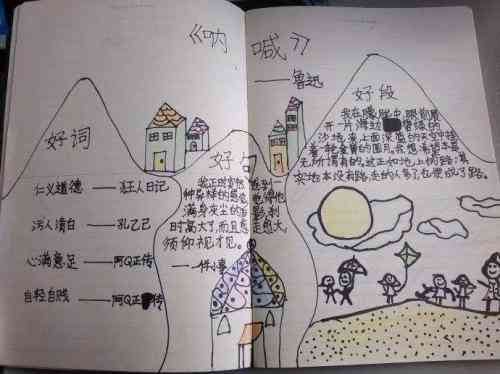 《呐喊》
——鲁迅
好词
仁义道德 ——狂人日记
污人清白 ——孔乙己
心满意足 ——阿Q正传
自轻自贱 ——阿Q正传
好句
我这时突然感到一
种异样的感觉,觉得他
满身灰尘的后影,刹
时高大了,而且愈走愈大,
须仰视才见。
——一件小事
好段
我在朦胧中,眼前展
开一片海边碧绿的
沙地来,上面深蓝色的天空中挂
着一轮金黄的圆月。我想:希望本是
无所谓有的,这正如地上的路,其
实地本没有路,走的人多了,也便成了路。